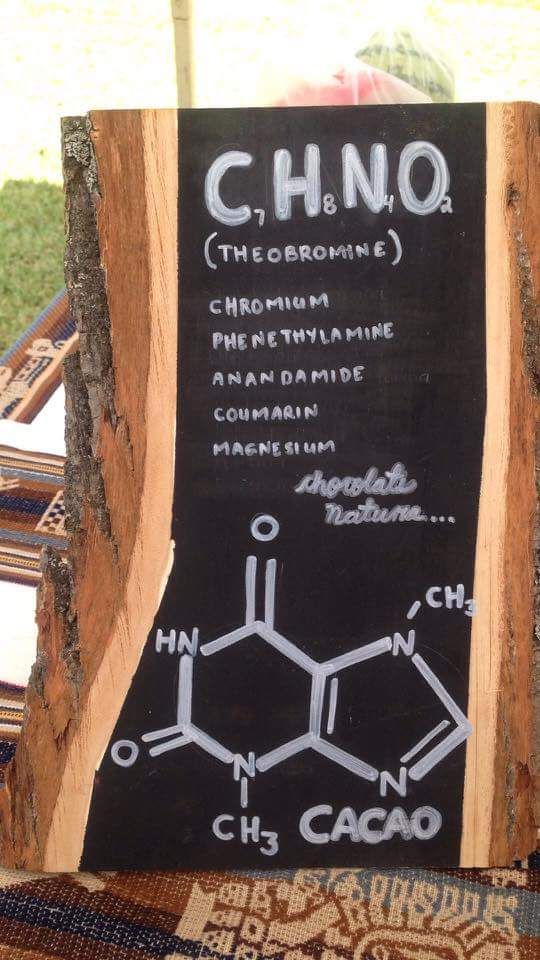 C7H8N4O2
(THEOBROMINE)
CHROMIUM
PHENETHYLAMINE
ANANDAMIDE
COUMARIN
MAGNESIUM
chocolate
nature...
O
CH3
HN
N
O
N
N
CH3
CACAO